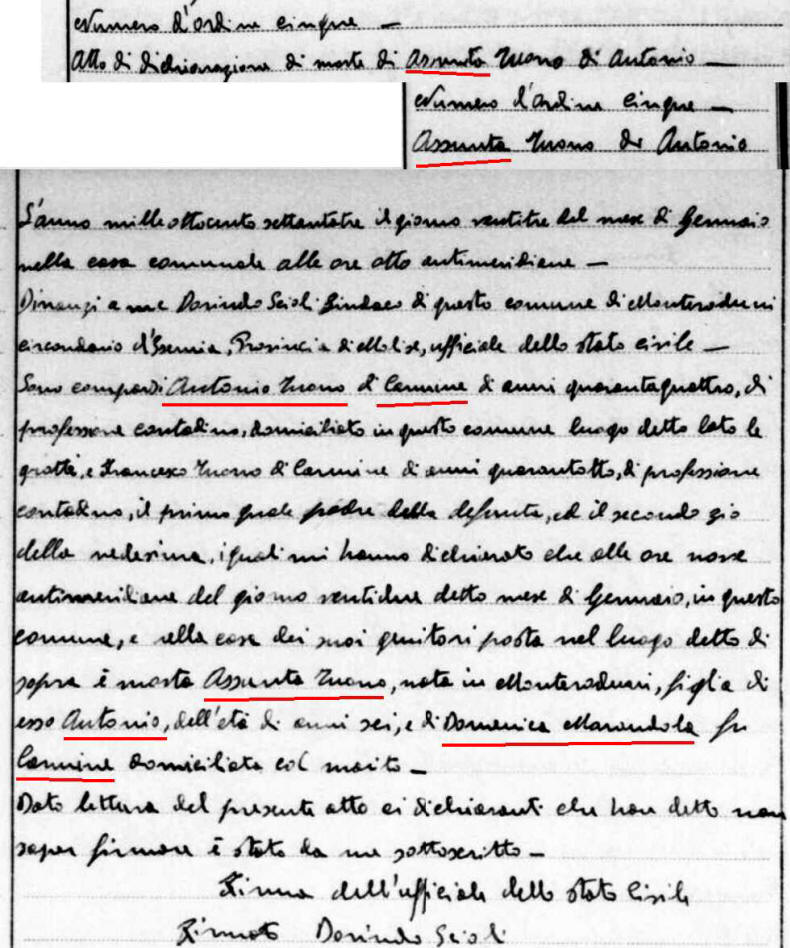 Numero d'ordine cinque —
Atto di dichiarazione di morte di Assunta Zuono di Antonio —
Numero d'ordine cinque —
Assunta Zuono di Antonio
L'anno milleottocento settantatre il giorno ventitre del mese di Gennaio
nella casa comunale alle ore otto antimeridiane —
Dinanzi a me Dorindo Scioli Sindaco di questo comune di Monteroduni
circondario d'Isernia, Provincia di Molise, ufficiale dello stato civile —
Sono comparsi Antonio Zuono di Carmine di anni quarantaquattro, di
professione contadino, domiciliato in questo comune luogo detto lato le
grotte, e Francesco Zuono di Carmine di anni quarantotto, di professione
contadino, il primo quale padre della defunta, ed il secondo zio
della medesima, i quali mi hanno dichiarato che alle ore nove
antimeridiane del giorno ventidue detto mese di Gennaio, in questo
comune, e nella casa dei suoi genitori posta nel luogo detto di
sopra è morta Assunta Zuono, nata in Monteroduni, figlia di
esso Antonio, dell'età di anni sei, e di Domenica Marandola fu
Carmine domiciliata col marito —
Dato lettura del presente atto ai dichiaranti che han detto non
saper firmare è stato da me sottoscritto —
Firma dell'ufficiale dello stato Civile
Firmato Dorindo Scioli